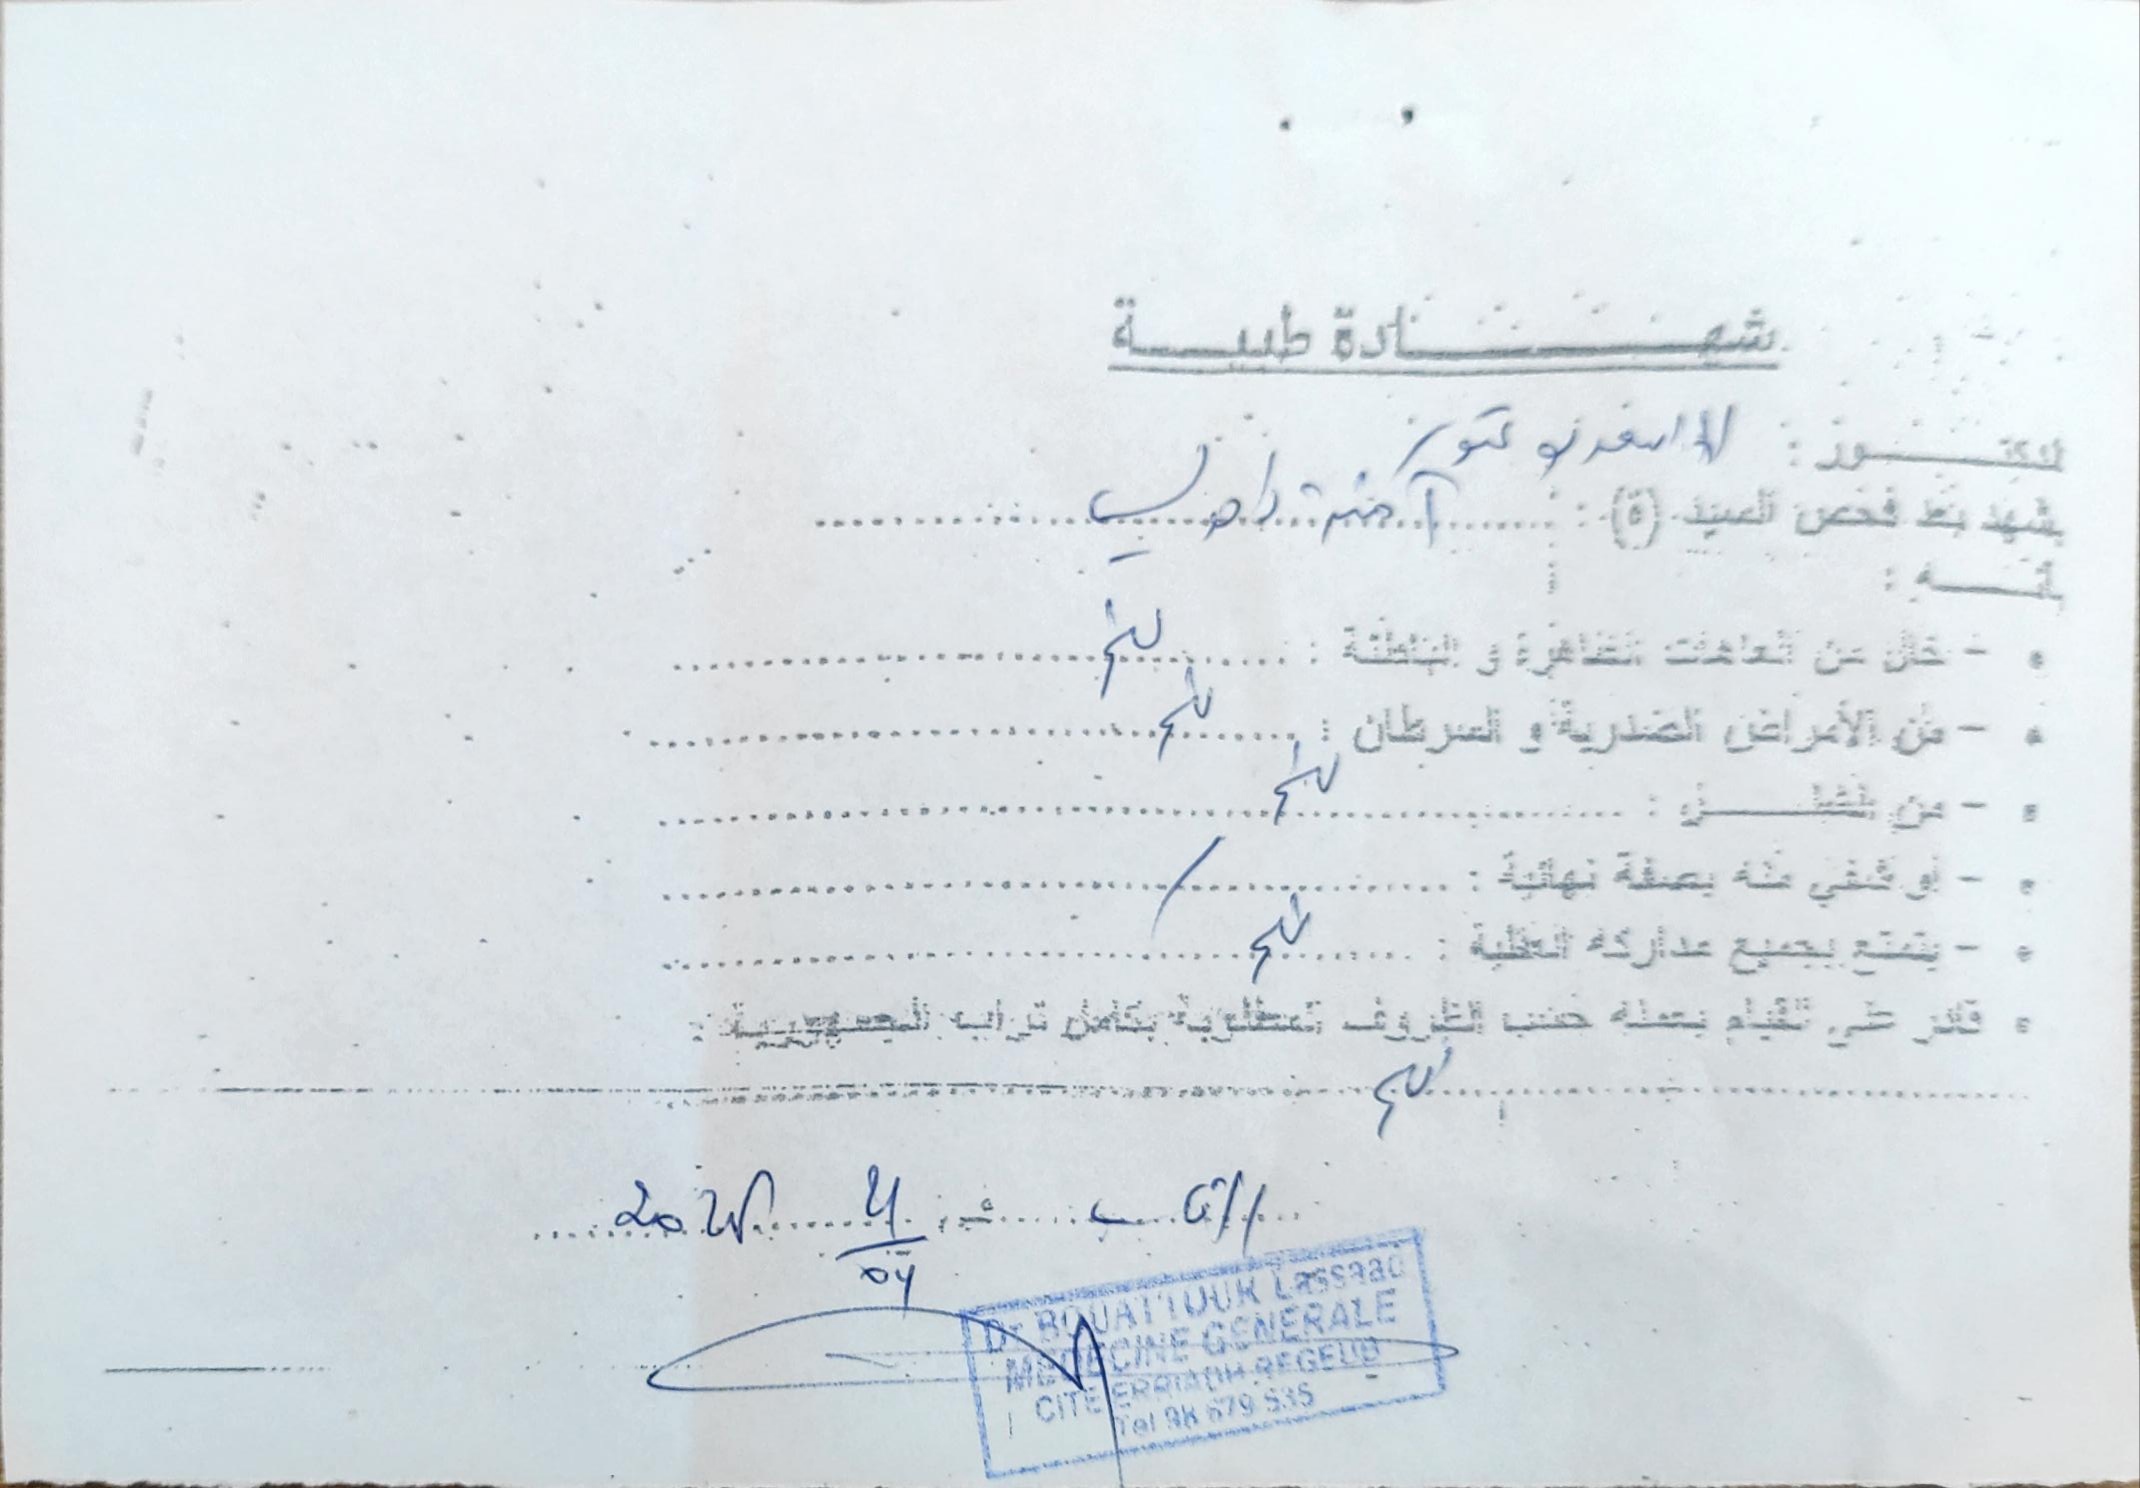 شهادة طبية
الدكتور : الأسعد بوعتور
يشهد بعد فحص السيد (ة) : آمنة زاهي
أنه :
- خال من العاهات الظاهرة و الباطنة : سليم
- من الأمراض الصدرية و السرطان : سليم
- من : سليم
- و شفي منه بصفة نهائية : /
- يتمتع بجميع مداركه العقلية : سليم
قادر على القيام بعمله حسب الظروف المطلوبة بكامل تراب الجمهورية :
سليم
الرقاب في
Dr BOUATTOUR Lassaad
MEDECINE GENERALE
CITE ERRIADH REGEUB
Tel 98 679 535